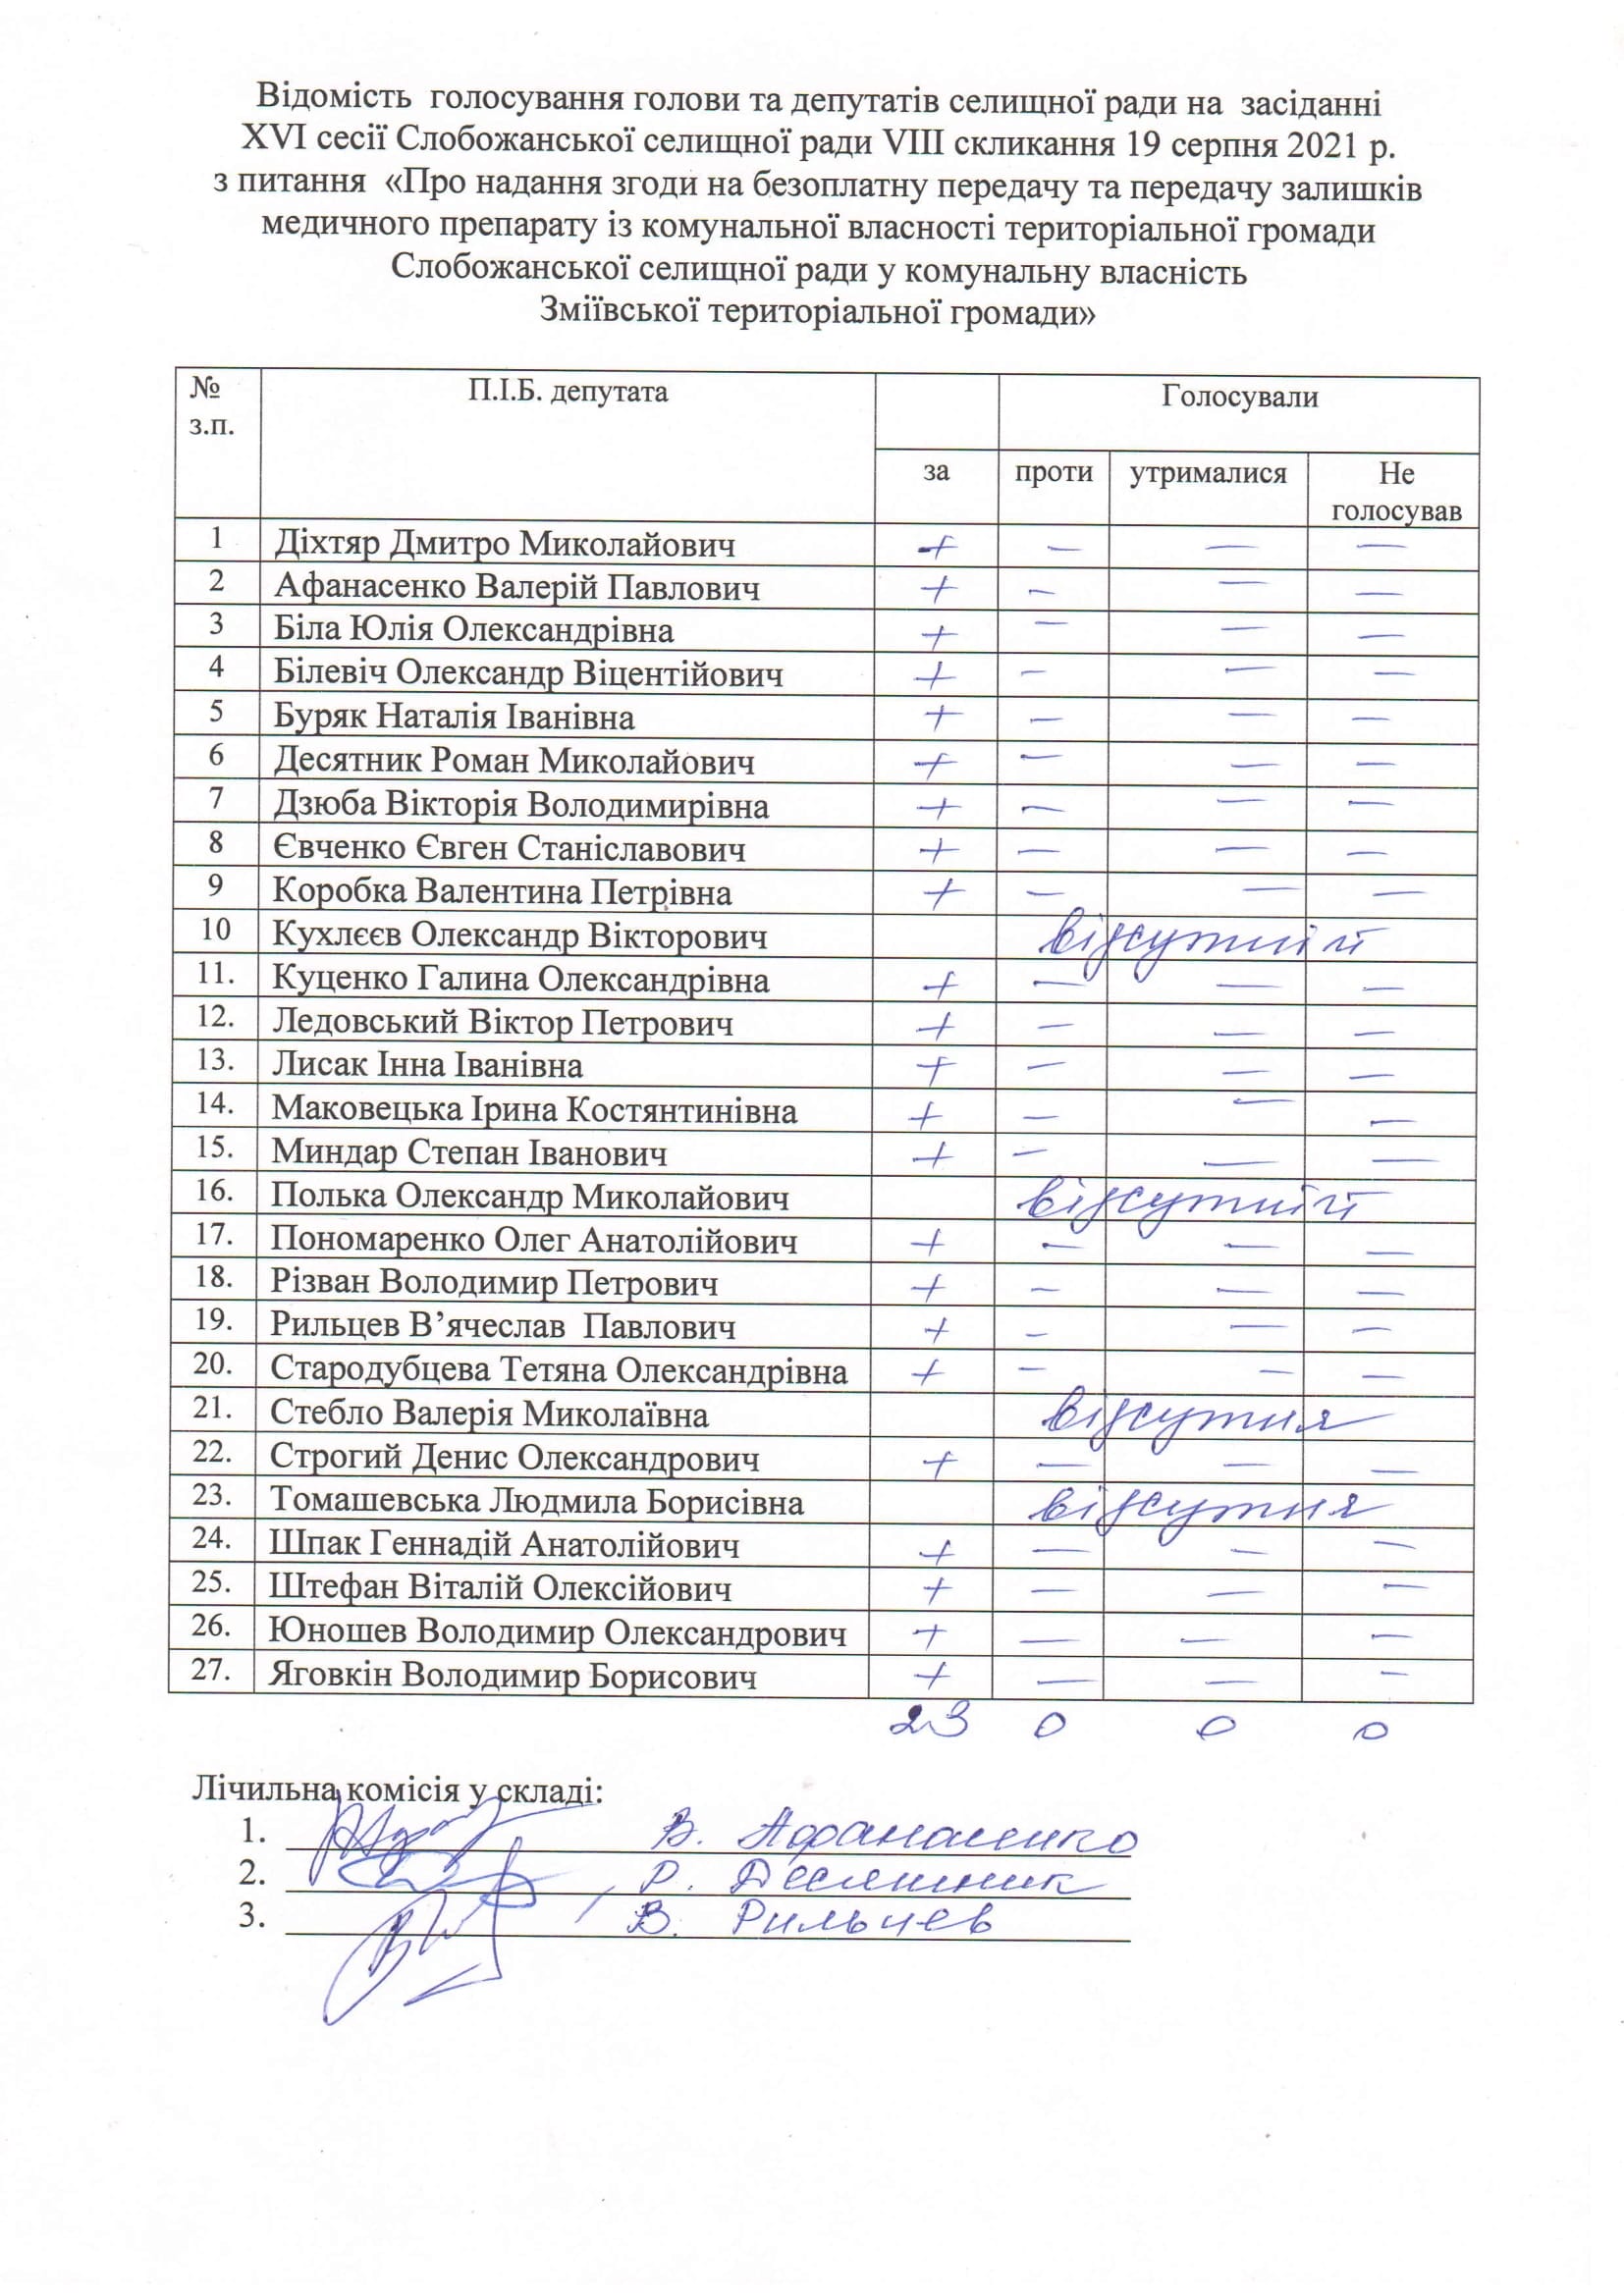 Відомість голосування голови та депутатів селищної ради на засіданні
XVI сесії Слобожанської селищної ради VIII скликання 19 серпня 2021 р.
з питання «Про надання згоди на безоплатну передачу та передачу залишків
медичного препарату із комунальної власності територіальної громади
Слобожанської селищної ради у комунальну власність
Зміївської територіальної громади»
№ з.п. П.І.Б. депутата Голосували
за проти утрималися Не голосував
1 Діхтяр Дмитро Миколайович + — — —
2 Афанасенко Валерій Павлович + — — —
3 Біла Юлія Олександрівна + — — —
4 Білевіч Олександр Віцентійович + — — —
5 Буряк Наталія Іванівна + — — —
6 Десятник Роман Миколайович + — — —
7 Дзюба Вікторія Володимирівна + — — —
8 Євченко Євген Станіславович + — — —
9 Коробка Валентина Петрівна + — — —
10 Кухлєєв Олександр Вікторович відсутній
11. Куценко Галина Олександрівна + — — —
12. Ледовський Віктор Петрович + — — —
13. Лисак Інна Іванівна + — — —
14. Маковецька Ірина Костянтинівна + — — —
15. Миндар Степан Іванович + — — —
16. Полька Олександр Миколайович відсутній
17. Пономаренко Олег Анатолійович + — — —
18. Різван Володимир Петрович + — — —
19. Рильцев В’ячеслав Павлович + — — —
20. Стародубцева Тетяна Олександрівна + — — —
21. Стебло Валерія Миколаївна відсутня
22. Строгий Денис Олександрович + — — —
23. Томашевська Людмила Борисівна відсутня
24. Шпак Геннадій Анатолійович + — — —
25. Штефан Віталій Олексійович + — — —
26. Юношев Володимир Олександрович + — — —
27. Яговкін Володимир Борисович + — — —
23 0 0 0
Лічильна комісія у складі:
1. В. Афанасенко
2. Р. Десятник
3. В. Рильцев